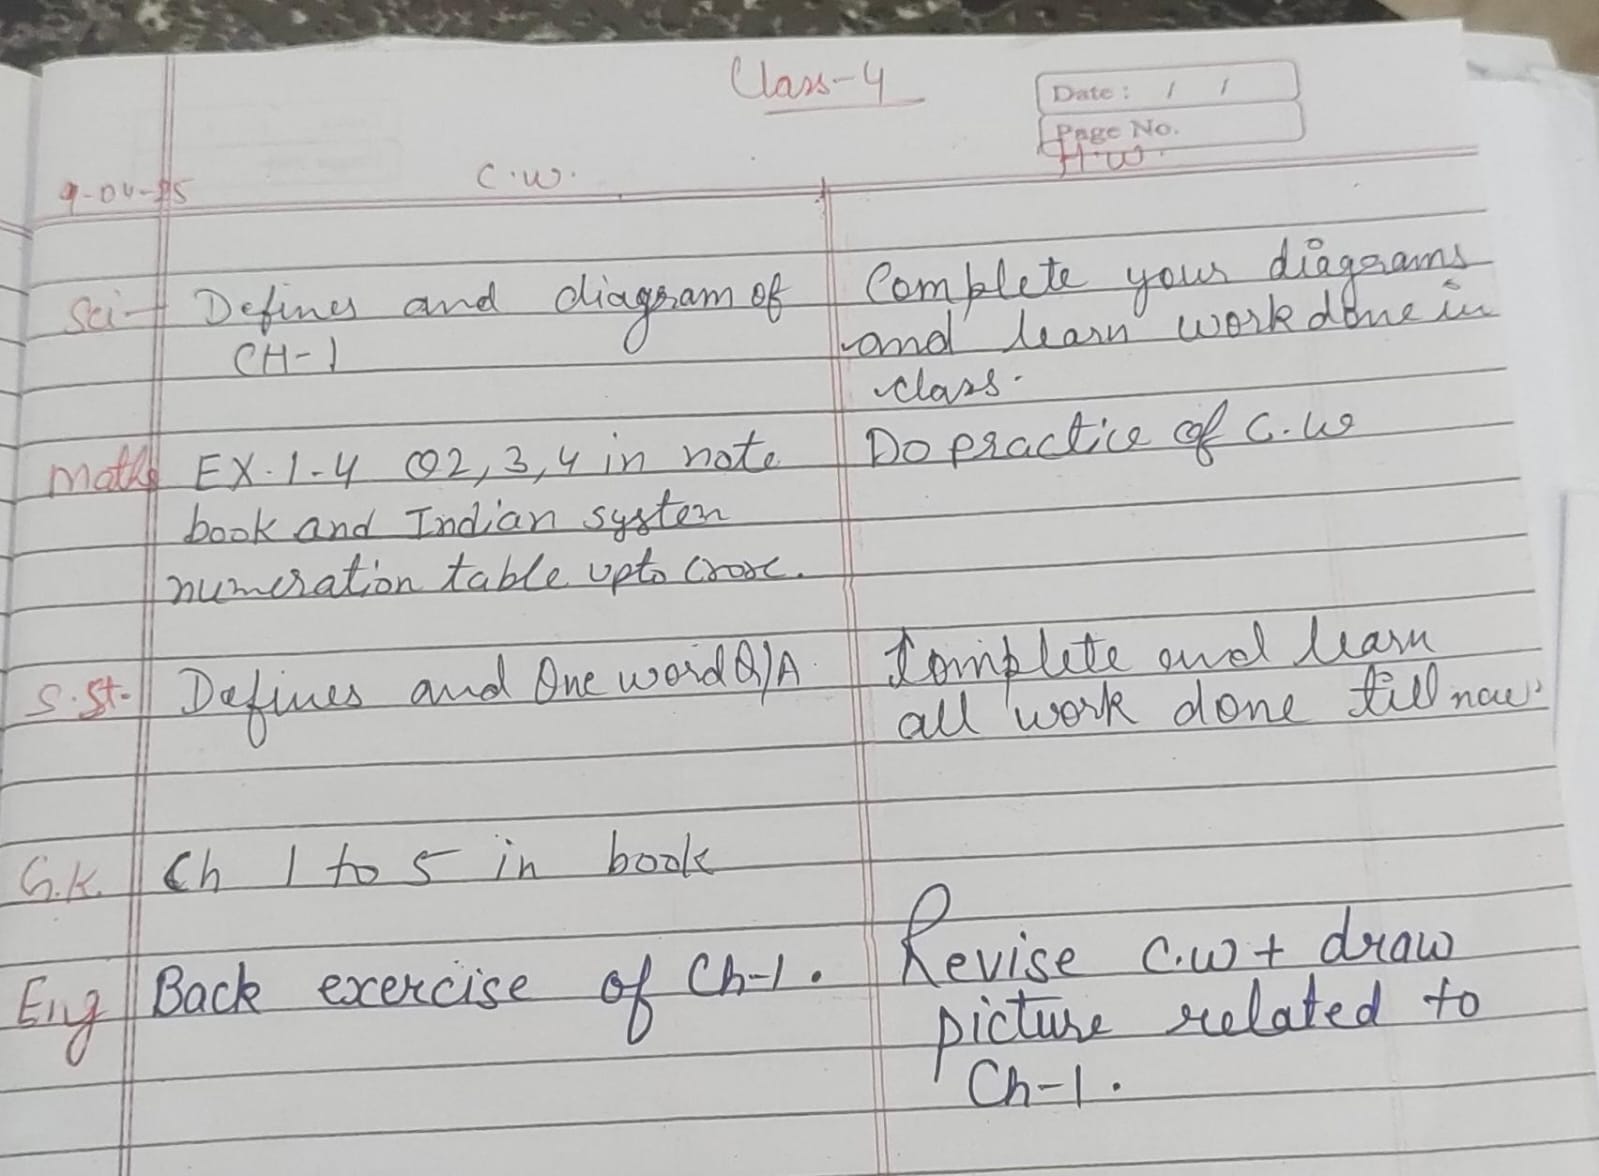 Class-4
Date: / /
Page No.
H.W.
9-04-25
C.W.
Sci- Defines and diagram of
CH-1
Complete your diagrams
and learn work done in
class.
Maths EX.1-4 Q2,3,4 in note
book and Indian system
numeration table upto crore.
Do practice of C.W
S.St. Defines and One word Q/A
Complete and learn
all work done till now.
G.K. Ch 1 to 5 in book
Eng Back exercise of Ch-1.
Revise C.W + draw
picture related to
Ch-1.